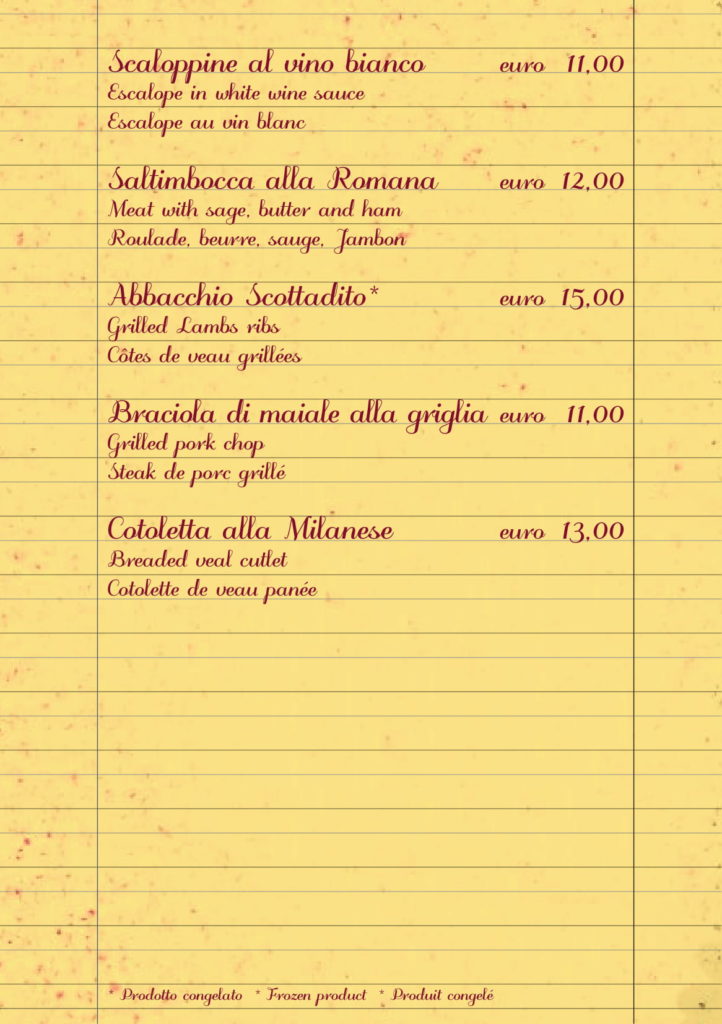 Scaloppine al vino bianco euro 11,00
Escalope in white wine sauce
Escalope au vin blanc
Saltimbocca alla Romana euro 12,00
Meat with sage, butter and ham
Roulade, beurre, sauge, Jambon
Abbacchio Scottadito* euro 15,00
Grilled Lambs ribs
Côtes de veau grillées
Braciola di maiale alla griglia euro 11,00
Grilled pork chop
Steak de porc grillé
Cotoletta alla Milanese euro 13,00
Breaded veal cutlet
Cotolette de veau panée
* Prodotto congelato * Frozen product * Produit congelé